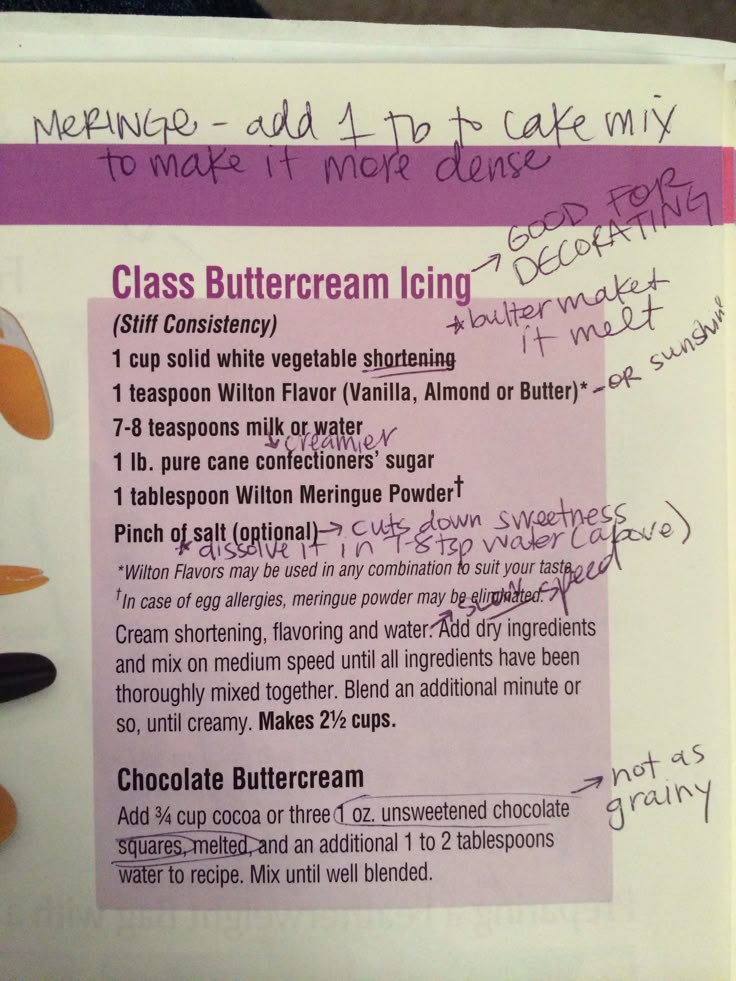 MERINGE - add 1 tb to cake mix
to make it more dense
→ GOOD FOR
DECORATING
Class Buttercream Icing
*butter makes
it melt
(Stiff Consistency)
1 cup solid white vegetable shortening
1 teaspoon Wilton Flavor (Vanilla, Almond or Butter)* - OR sunshine
7-8 teaspoons milk or water
↳ creamier
1 lb. pure cane confectioners' sugar
1 tablespoon Wilton Meringue Powder†
Pinch of salt (optional) → cuts down sweetness
* dissolve it in 7-8 tsp water (above)
*Wilton Flavors may be used in any combination to suit your taste.
†In case of egg allergies, meringue powder may be eliminated.
→ slow speed
Cream shortening, flavoring and water. Add dry ingredients
and mix on medium speed until all ingredients have been
thoroughly mixed together. Blend an additional minute or
so, until creamy. Makes 2½ cups.
Chocolate Buttercream
→ not as
grainy
Add ¾ cup cocoa or three 1 oz. unsweetened chocolate
squares, melted, and an additional 1 to 2 tablespoons
water to recipe. Mix until well blended.